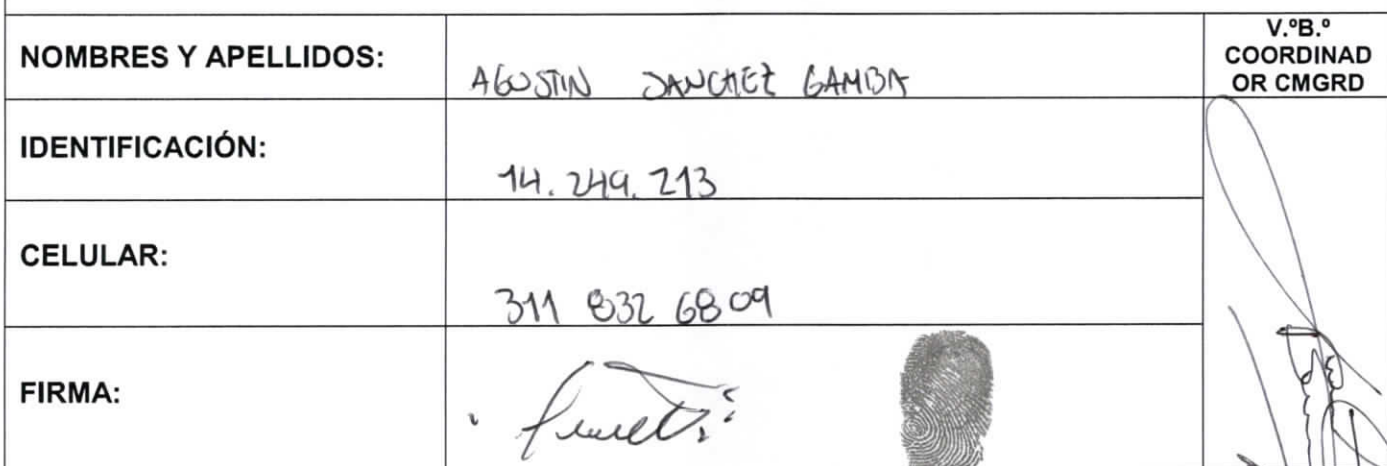 NOMBRES Y APELLIDOS: AGUSTIN SANCHEZ GAMBA
V.ºB.º
COORDINAD
OR CMGRD
IDENTIFICACIÓN: 14.249.213
CELULAR: 311 832 6809
FIRMA: